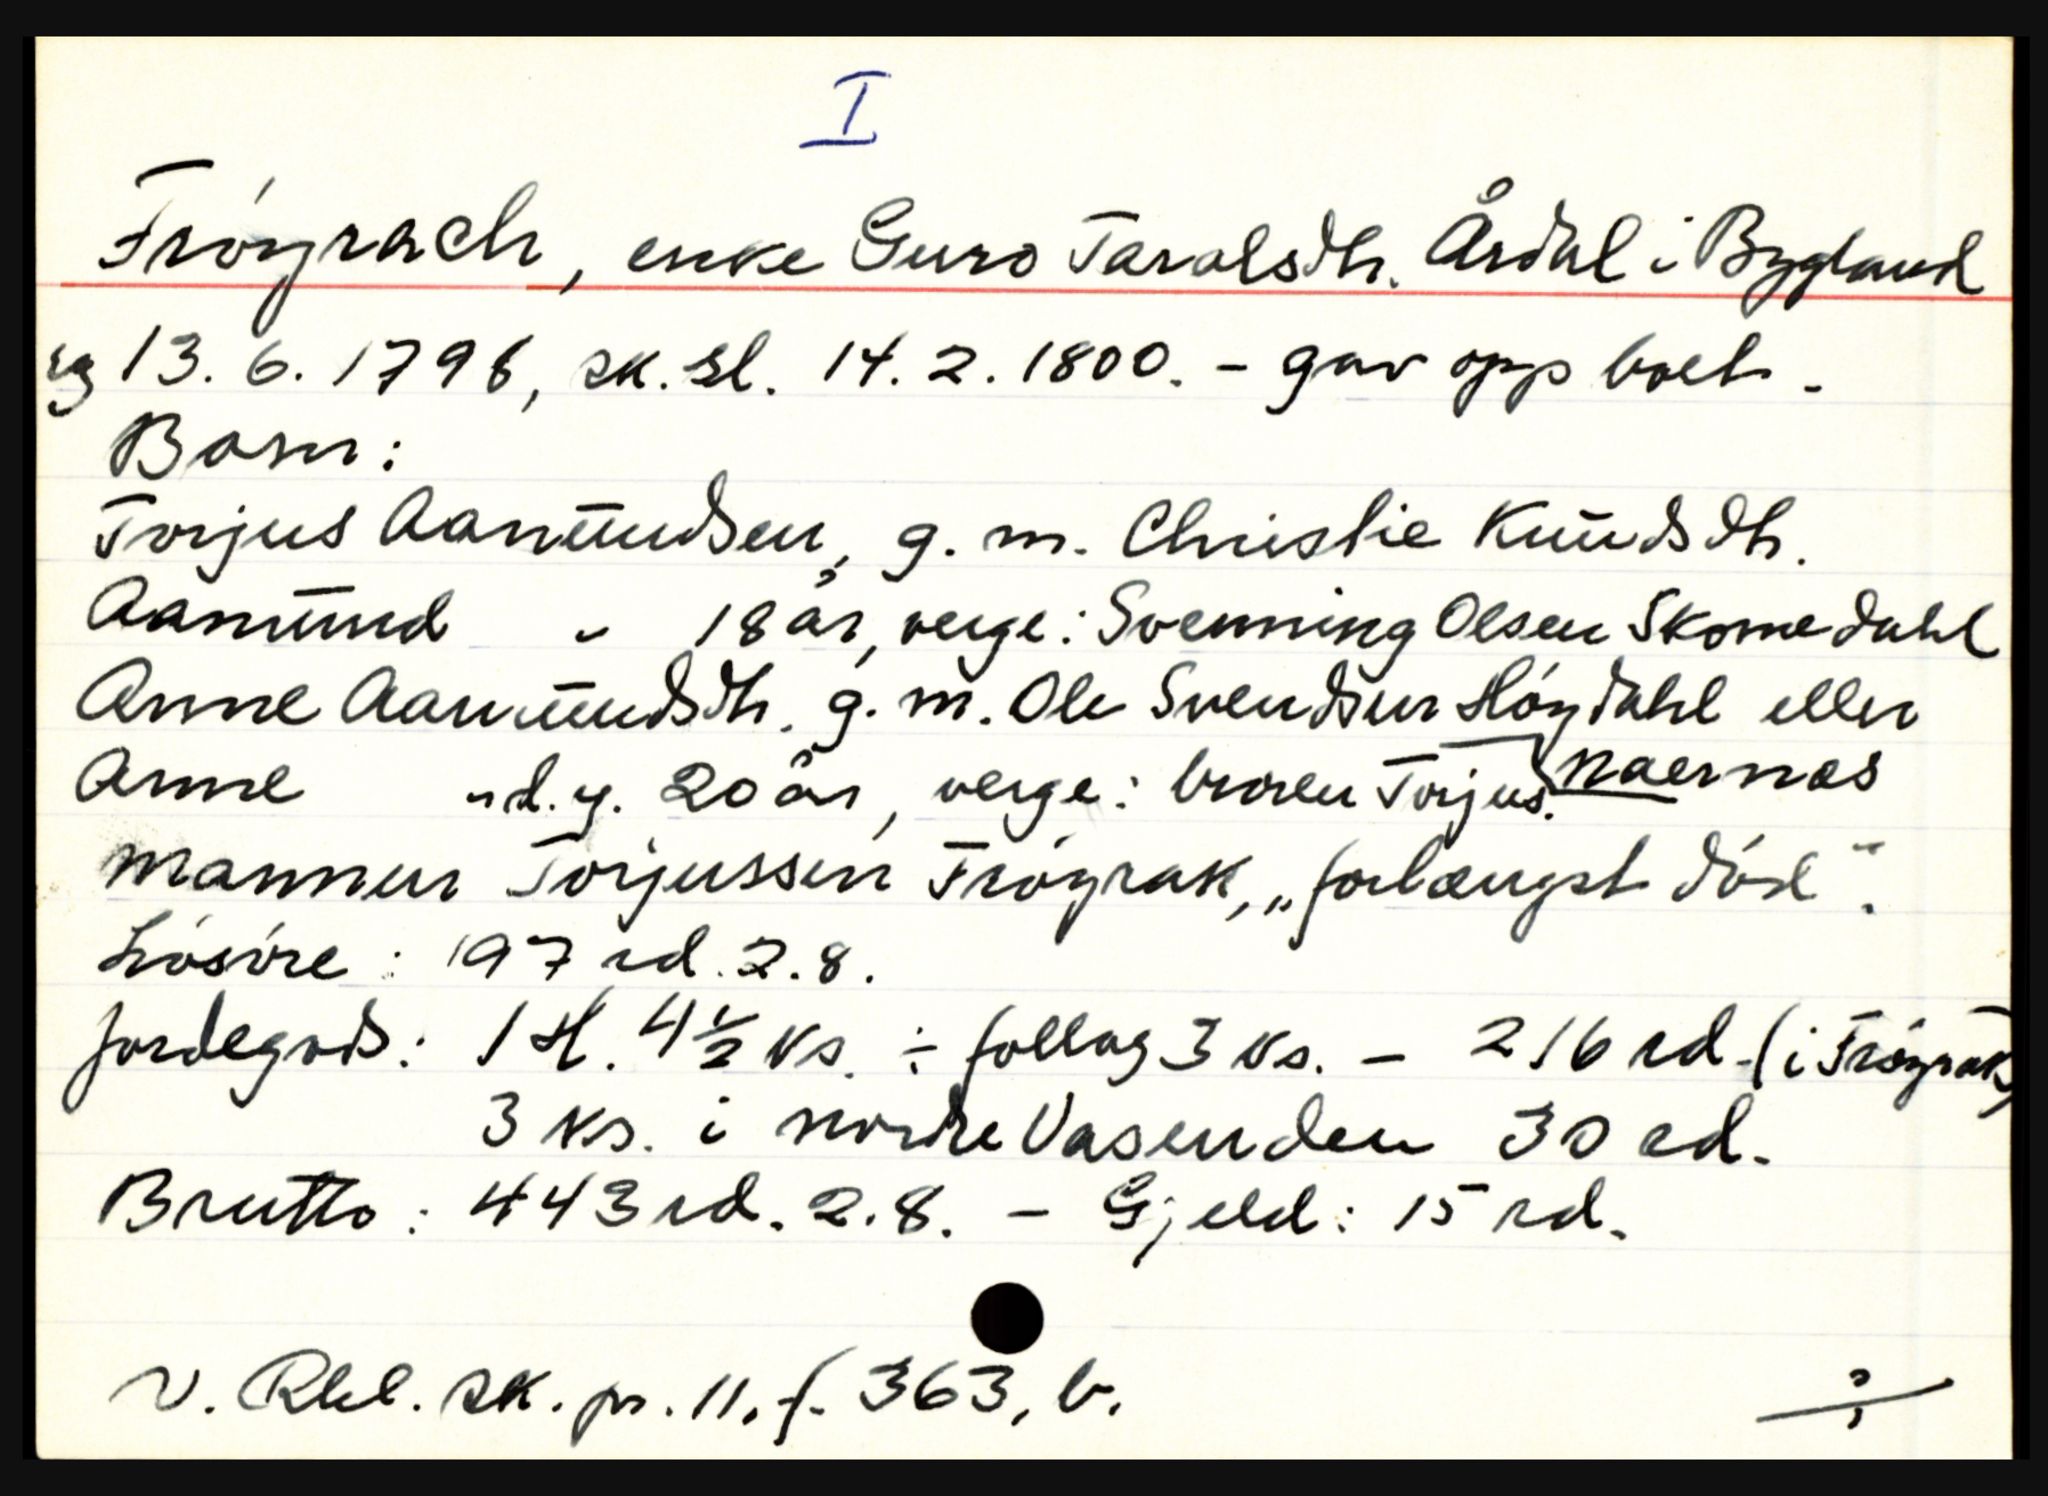 I
Frøyrach, enke Guro Taralsdtr. Årdal i Bygland
rg 13.6.1798, sk.sl. 14.2.1800. - gav opp boet.
Born:
Torjus Aanundsen, g.m. Christie Knudsdtr.
Aanund " 18 år, verge: Svenning Olsen Skomedahl
Anne Aanundsdtr. g.m. Ole Svendsen Høydahl eller Naernes
Anne " d.y. 20 år, verge: broren Torjus.
Mannen Torjussen Frøyrak, „forlængst død".
Løsøre: 197 rd. 2.8.
Jordegods: 1 H. 4½ ks. ÷ follog 3 ks. - 216 rd. (i Frøyrak)
3 ks. i nordre Vasenden 30 rd.
Brutto: 443 rd. 2.8. - Gjeld: 15 rd.
V. Rbl. sk. pr. 11. f. 363, b.